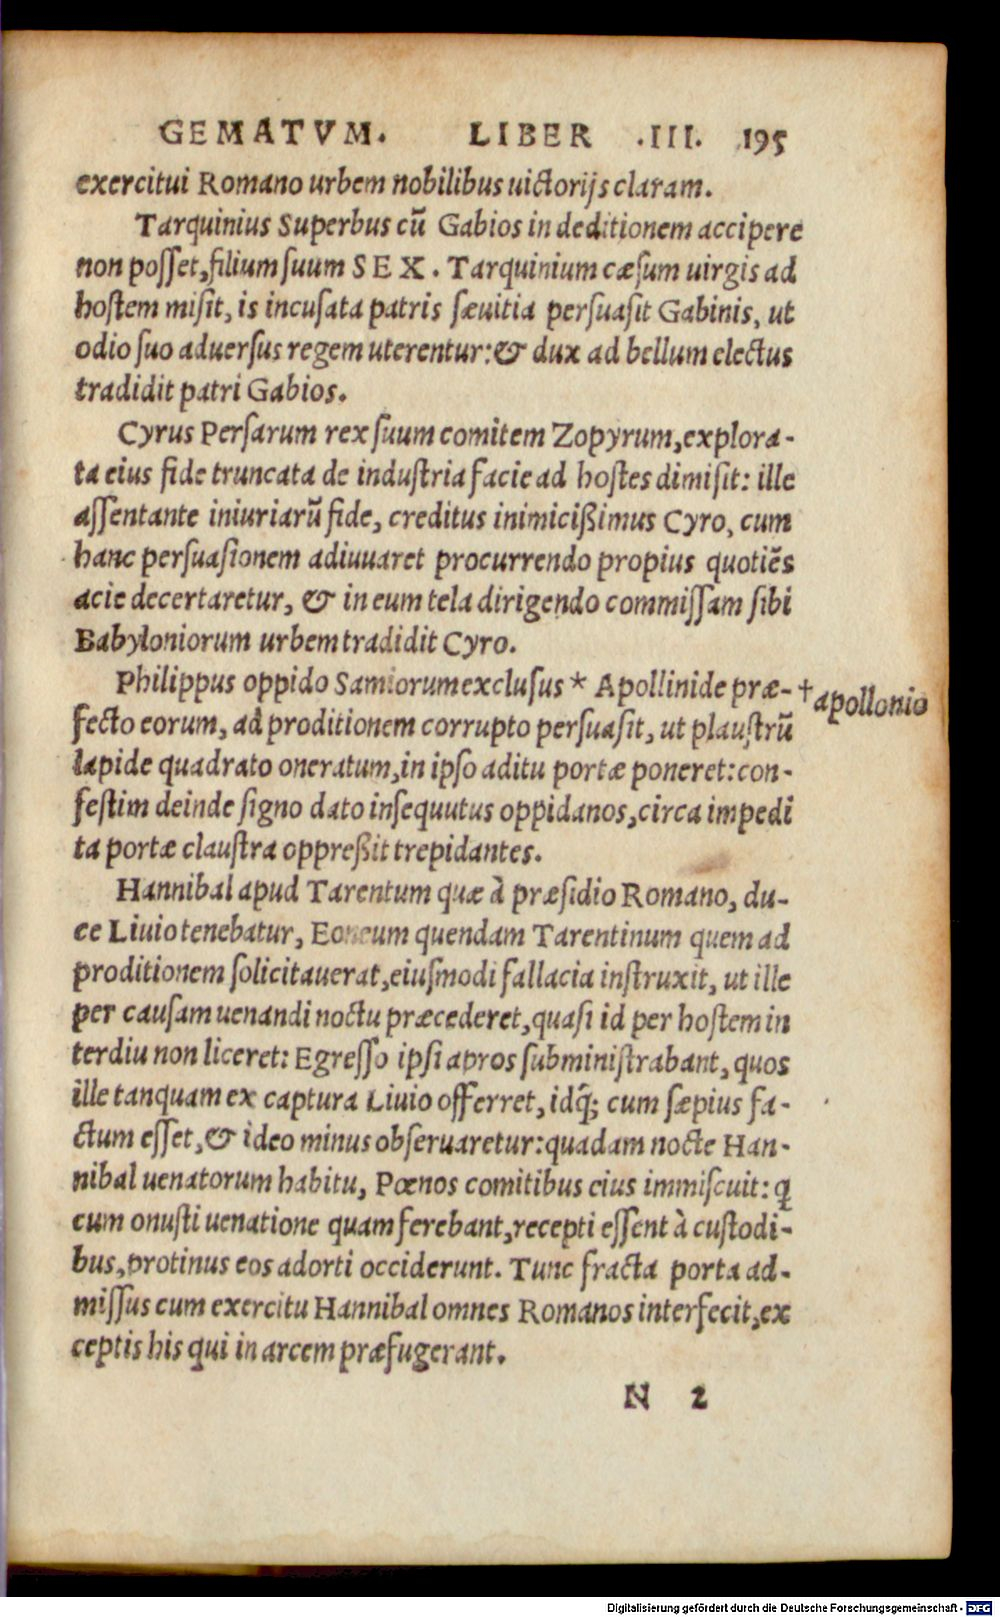 GEMATVM. LIBER .III. 195
exercitui Romano urbem nobilibus uictorijs claram.
Tarquinius Superbus cũ Gabios in deditionem accipere
non posset, filium suum SEX. Tarquinium cæsum uirgis ad
hostem misit, is incusata patris sæuitia persuasit Gabinis, ut
odio suo aduersus regem uterentur: & dux ad bellum electus
tradidit patri Gabios.
Cyrus Persarum rex suum comitem Zopyrum, explora-
ta eius fide truncata de industria facie ad hostes dimisit: ille
assentante iniuriarũ fide, creditus inimicißimus Cyro, cum
hanc persuasionem adiuuaret procurrendo propius quotiẽs
acie decertaretur, & in eum tela dirigendo commissam sibi
Babyloniorum urbem tradidit Cyro.
Philippus oppido Samiorum exclusus * Apollinide præ- † apollonio
fecto eorum, ad proditionem corrupto persuasit, ut plaustrũ
lapide quadrato oneratum, in ipso aditu portæ poneret: con-
festim deinde signo dato insequutus oppidanos, circa impedi
ta portæ claustra oppreßit trepidantes.
Hannibal apud Tarentum quæ à præsidio Romano, du-
ce Liuio tenebatur, quendam Tarentinum quem ad
proditionem solicitauerat, eiusmodi fallacia instruxit, ut ille
per causam uenandi noctu præcederet, quasi id per hostem in
terdiu non liceret: Egresso ipsi apros subministrabant, quos
ille tanquam ex captura Liuio offerret, idq́; cum sæpius fa-
ctum esset, & ideo minus obseruaretur: quadam nocte Han-
nibal uenatorum habitu, Pœnos comitibus eius immiscuit: q
cum onusti uenatione quam ferebant, recepti essent à custodi-
bus, protinus eos adorti occiderunt. Tunc fracta porta ad-
missus cum exercitu Hannibal omnes Romanos interfecit, ex
ceptis his qui in arcem præfugerant.
N 2
Digitalisierung gefördert durch die Deutsche Forschungsgemeinschaft - DFG